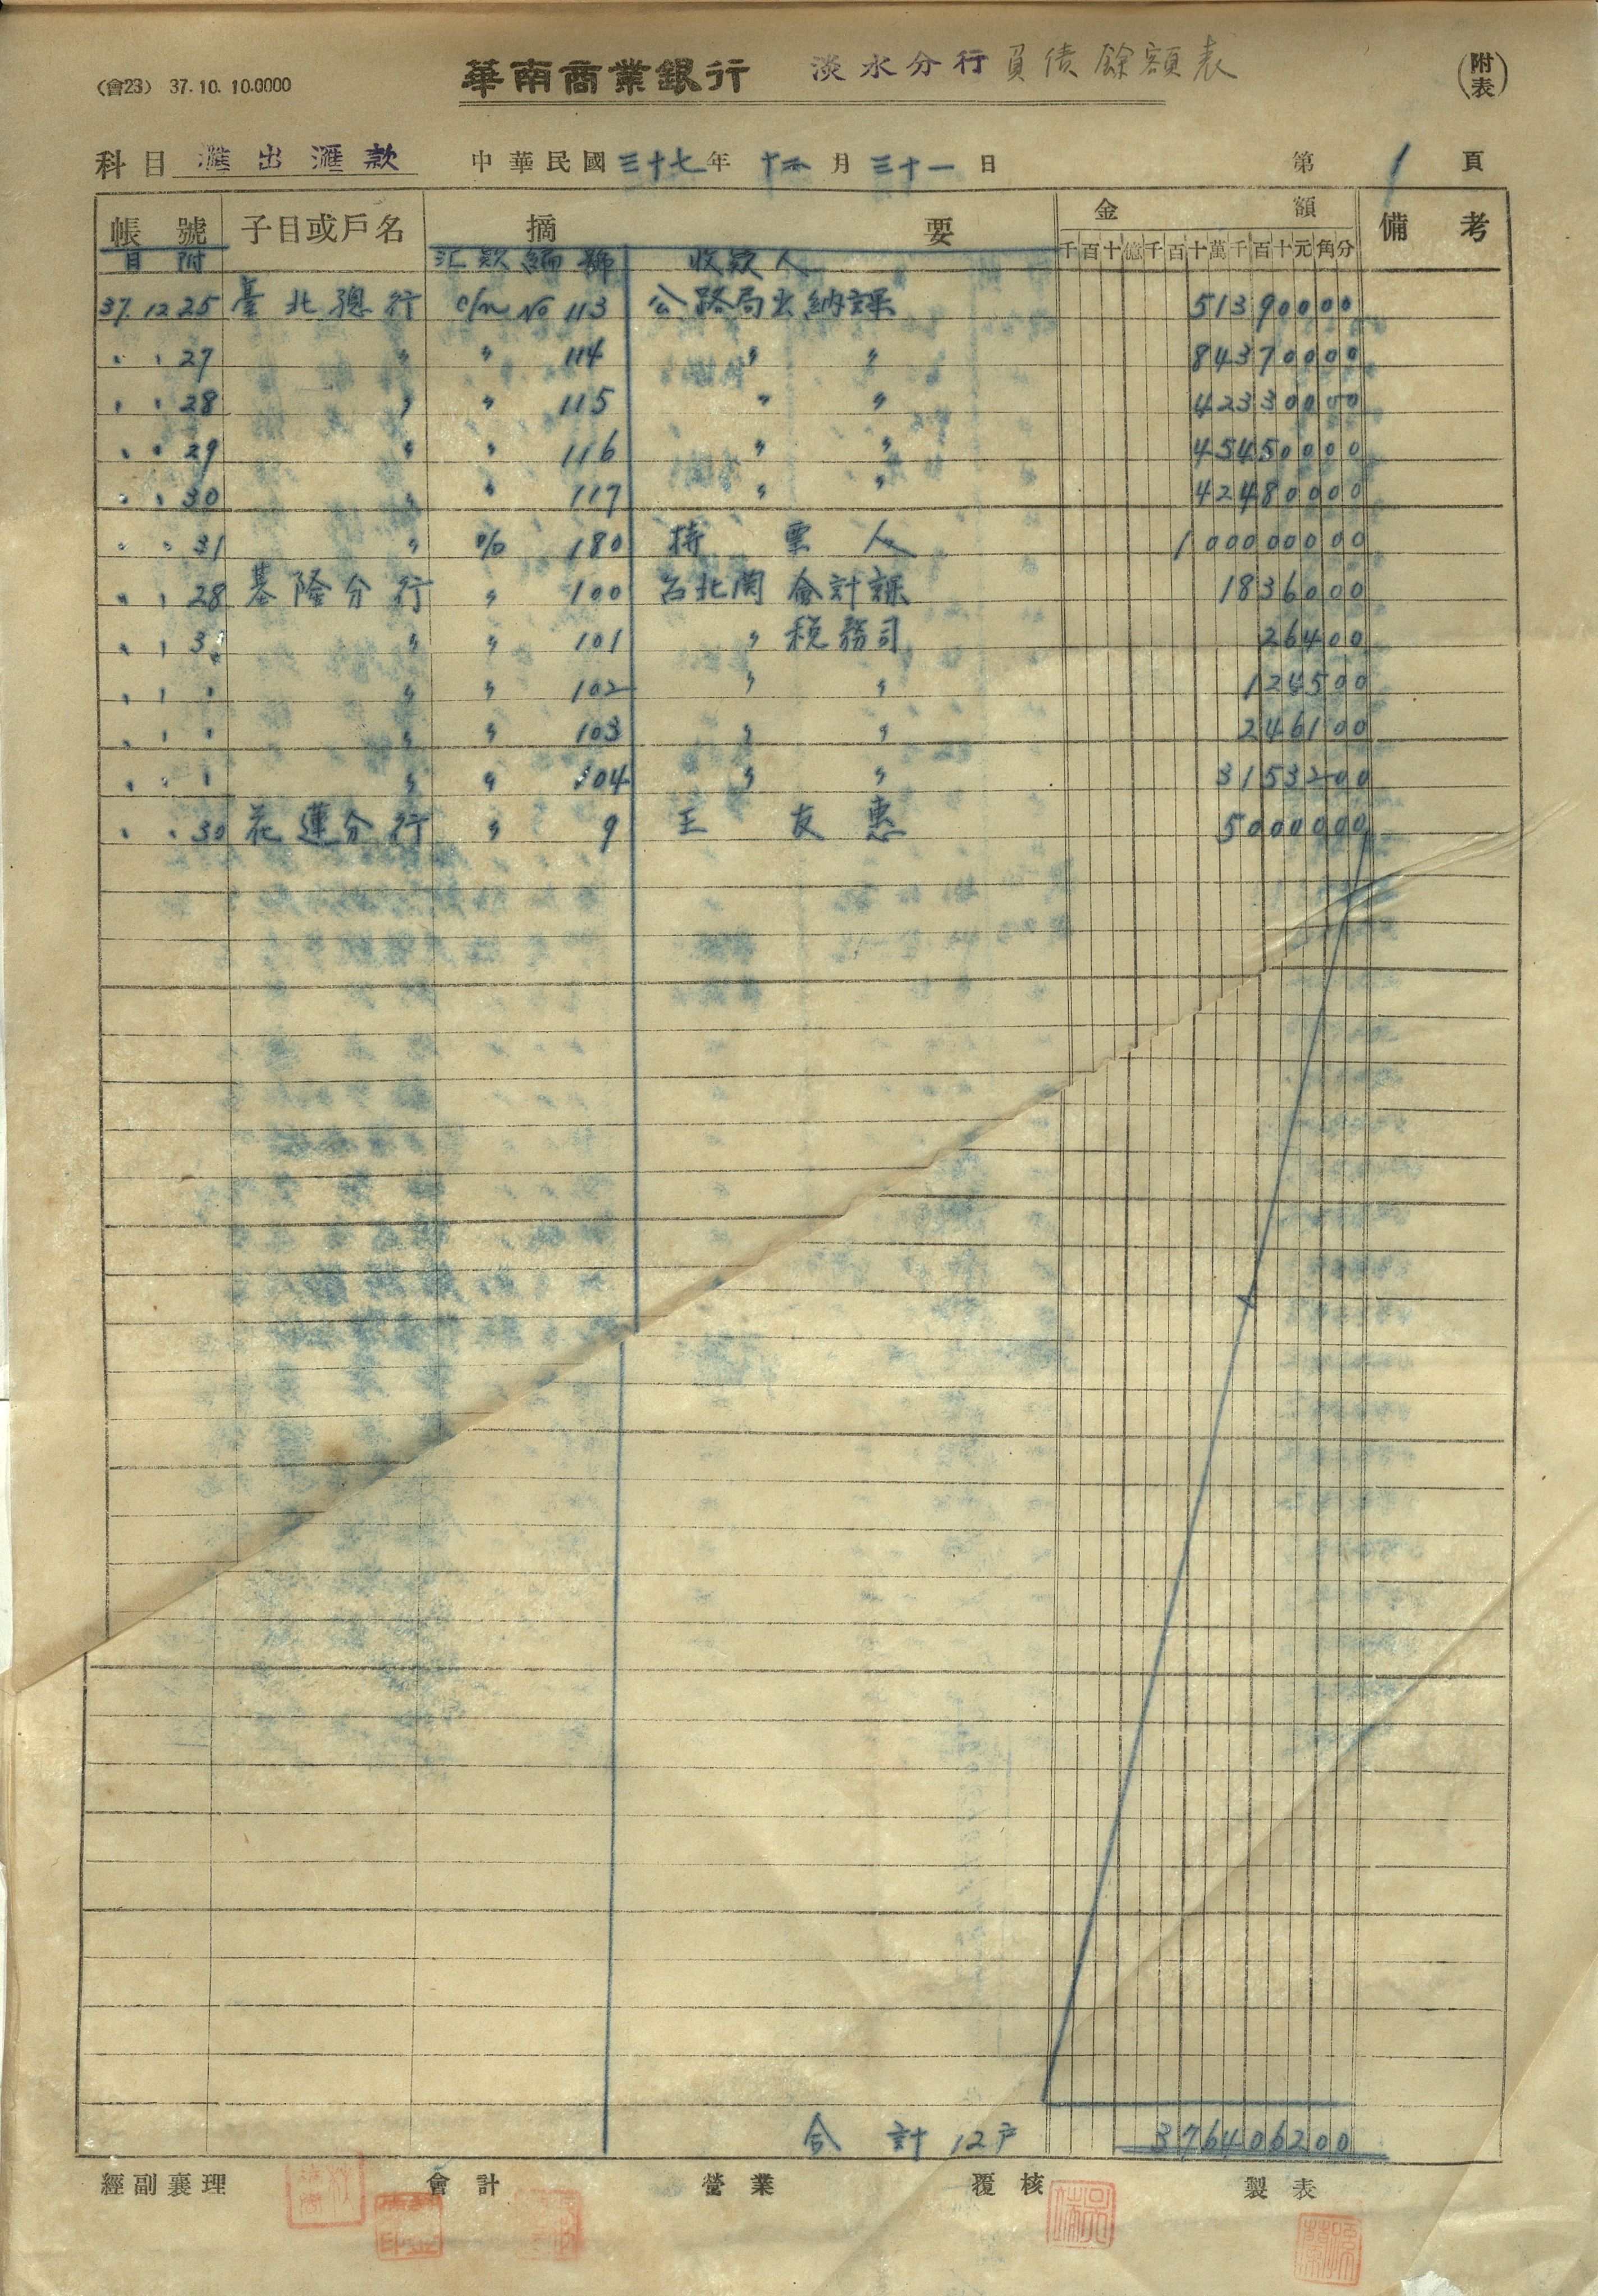 (會23) 37.10.10.0000 華南商業銀行 淡水分行 負債餘額表 (附表)
科目 滙出滙款 中華民國三十七年十二月三十一日 第1頁
帳號 子目或戶名 摘要 金額 備考
千百十億千百十萬千百十元角分
日附 汇款編號 收款人
37.12.25 臺北總行 c/m No 113 公路局出納課 51390000
〃 〃 27 〃 〃 114 〃 〃 84370000
〃 〃 28 〃 〃 115 〃 〃 42330000
〃 〃 29 〃 〃 116 〃 〃 45450000
〃 〃 30 〃 〃 117 〃 〃 42480000
〃 〃 31 〃 % 180 持票人 100000000
〃 〃 28 基隆分行 〃 100 台北関會計課 1836000
〃 〃 31 〃 〃 101 〃 稅務司 26400
〃 〃 〃 〃 〃 102 〃 〃 124500
〃 〃 〃 〃 〃 103 〃 〃 246100
〃 〃 〃 〃 〃 104 〃 〃 3153200
〃 〃 30 花蓮分行 〃 9 王友惠 5000000
合計 12戶 376406200
經副襄理 會計 營業 覆核 製表